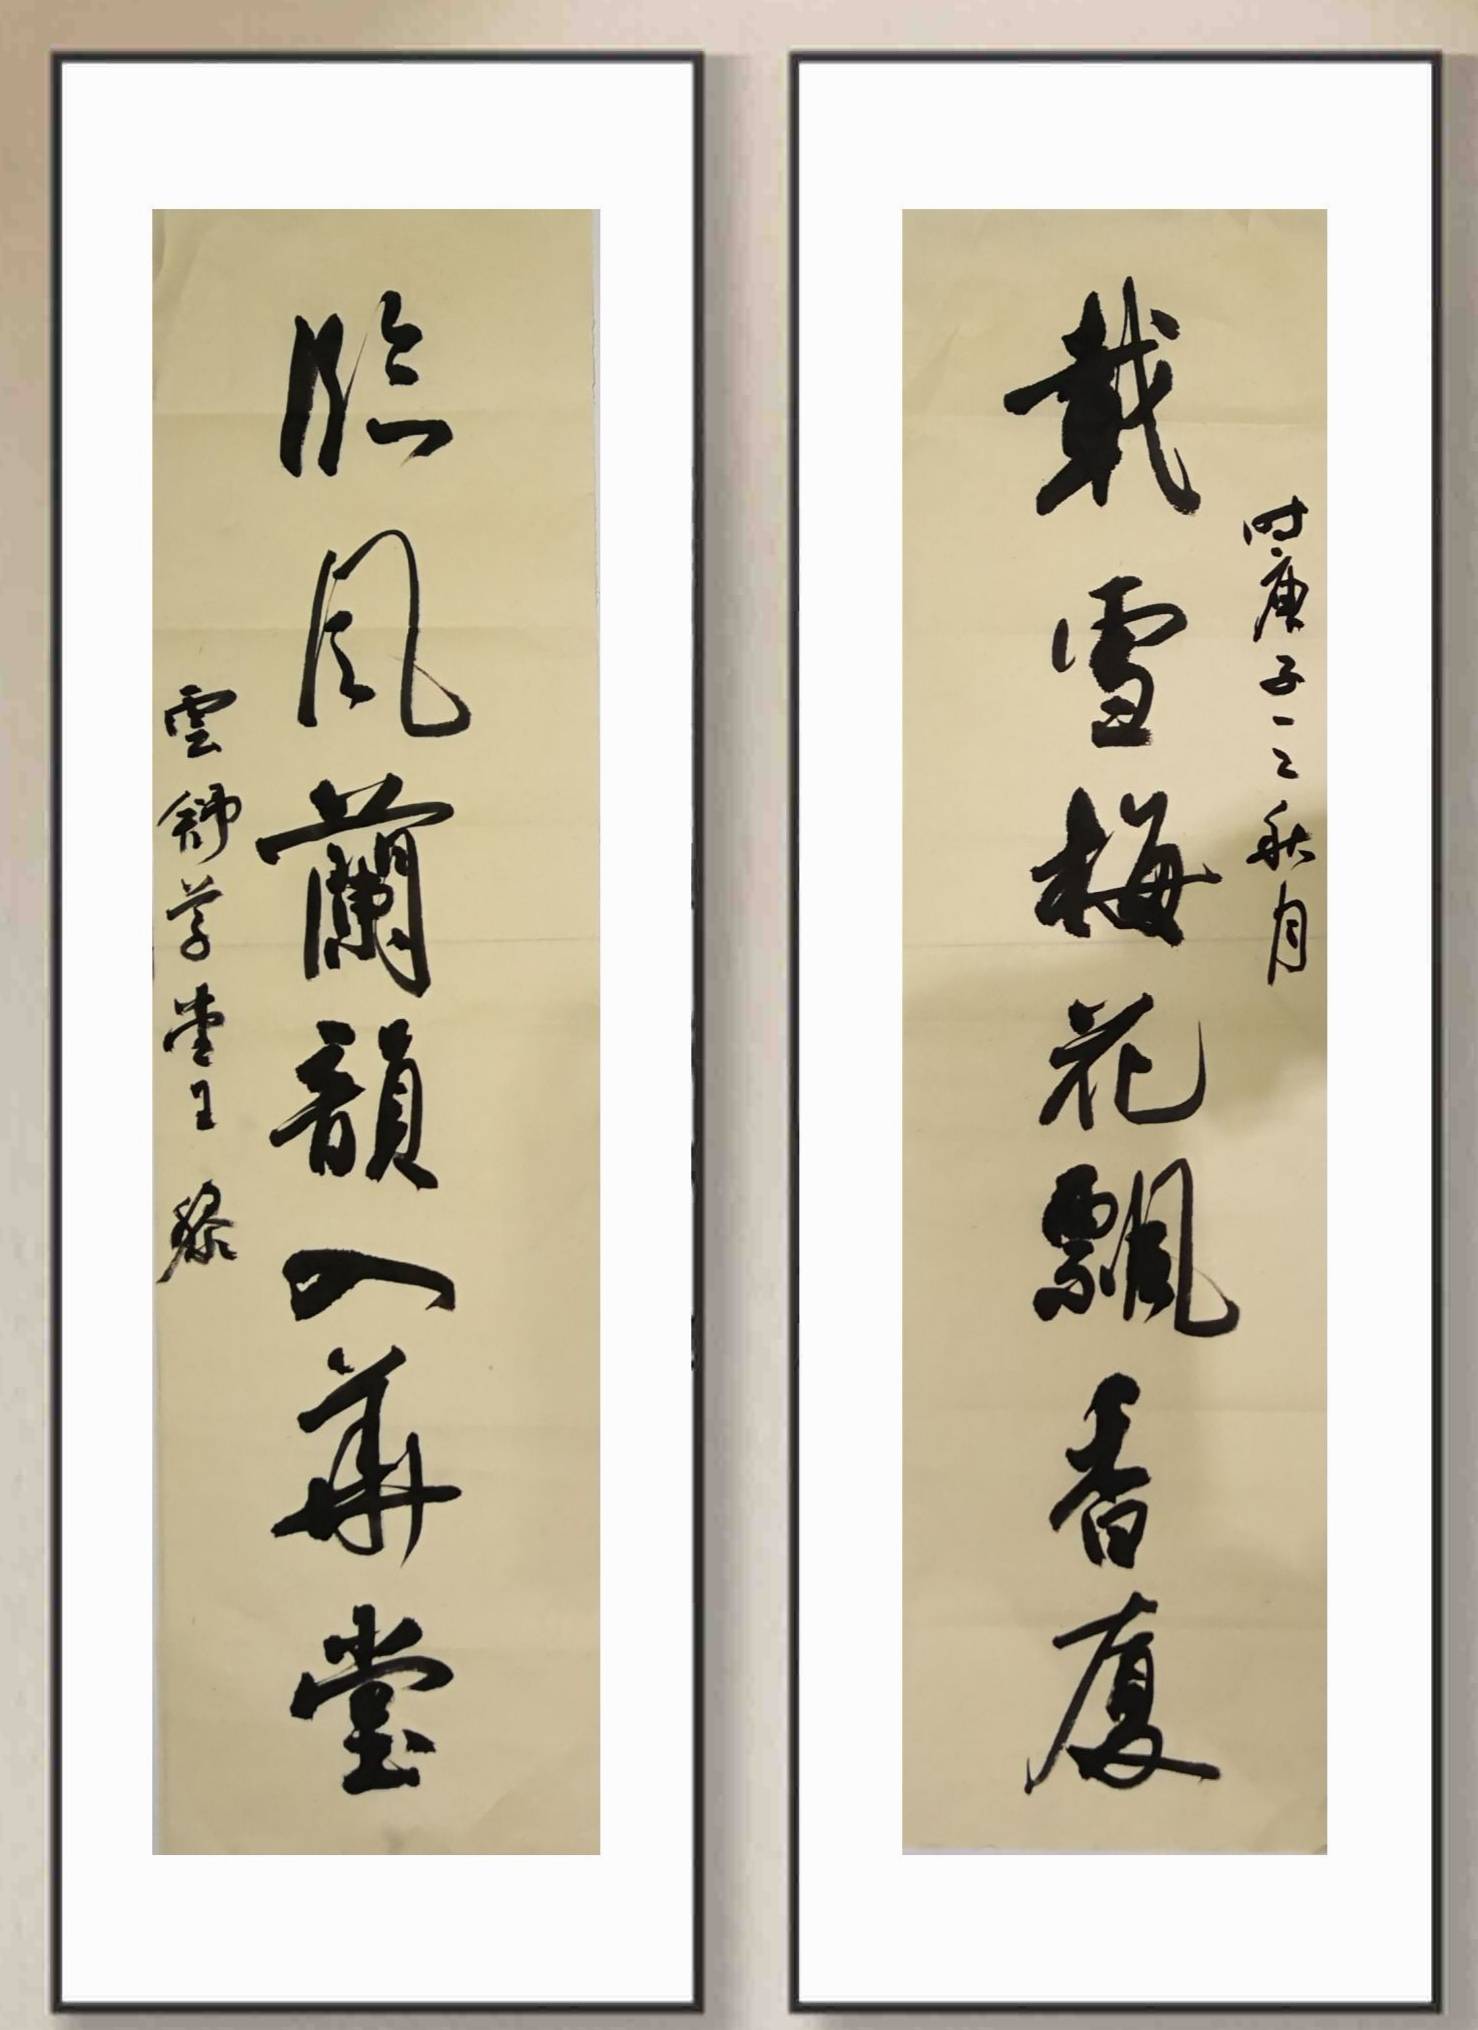 時庚子之秋月
戴雪梅花飄香廈
臨風蘭韻入華堂
雲舒草堂王